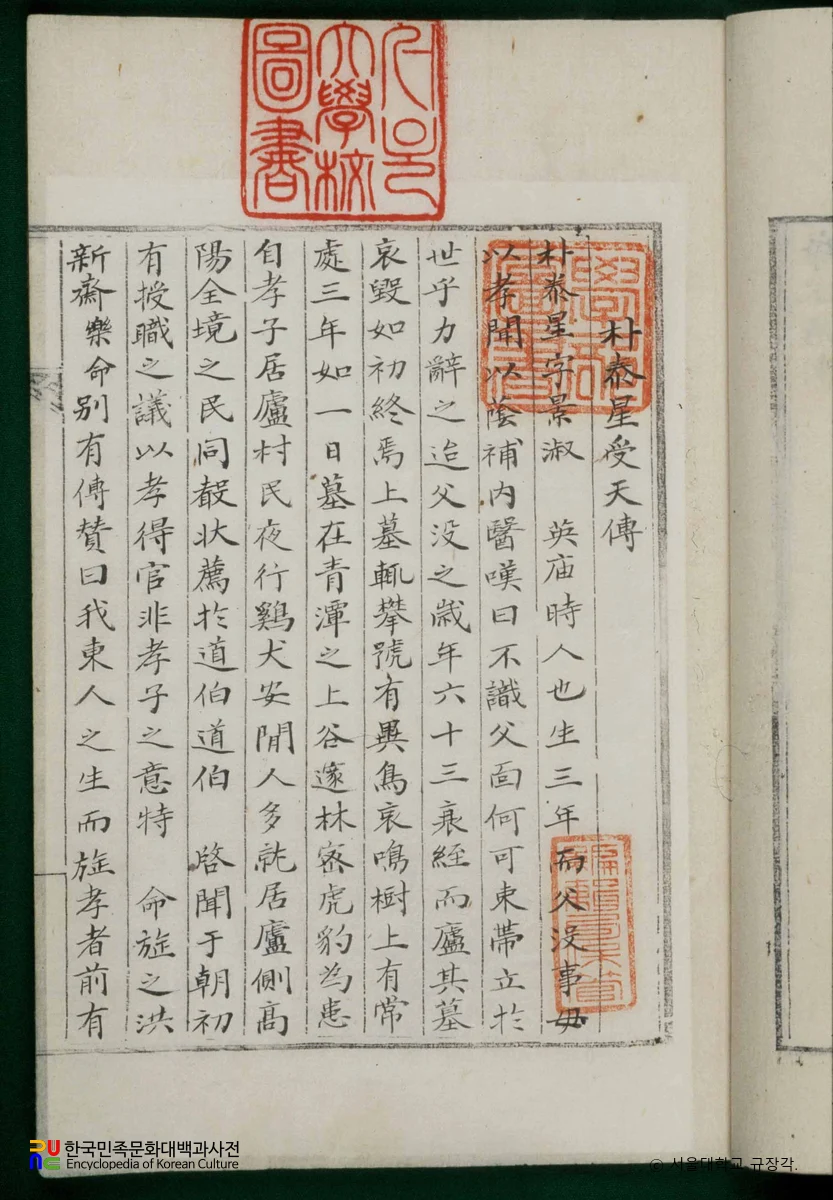 朴泰星受天傳
朴泰星字景淑 英庙時人也生三年而父没事母
以孝聞以蔭補內醫嘆曰不識父面何可束帶立於
世乎力辭之迨父没之歲年六十三衰絰而廬其墓
哀毀如初終焉上墓輒攀號有異鳥哀鳴樹上有常
處三年如一日墓在青潭之上谷邃林密虎豹為患
自孝子居廬村民夜行鷄犬安閒人多就居廬側高
陽全境之民同聲狀薦於道伯道伯 啓聞于朝初
有授職之議以孝得官非孝子之意特 命旌之洪
新齋樂命別有傳贊曰我東人之生而旌孝者前有
大學校
圖書
한국민족문화대백과사전
Encyclopedia of Korean Culture
© 서울대학교 규장각.